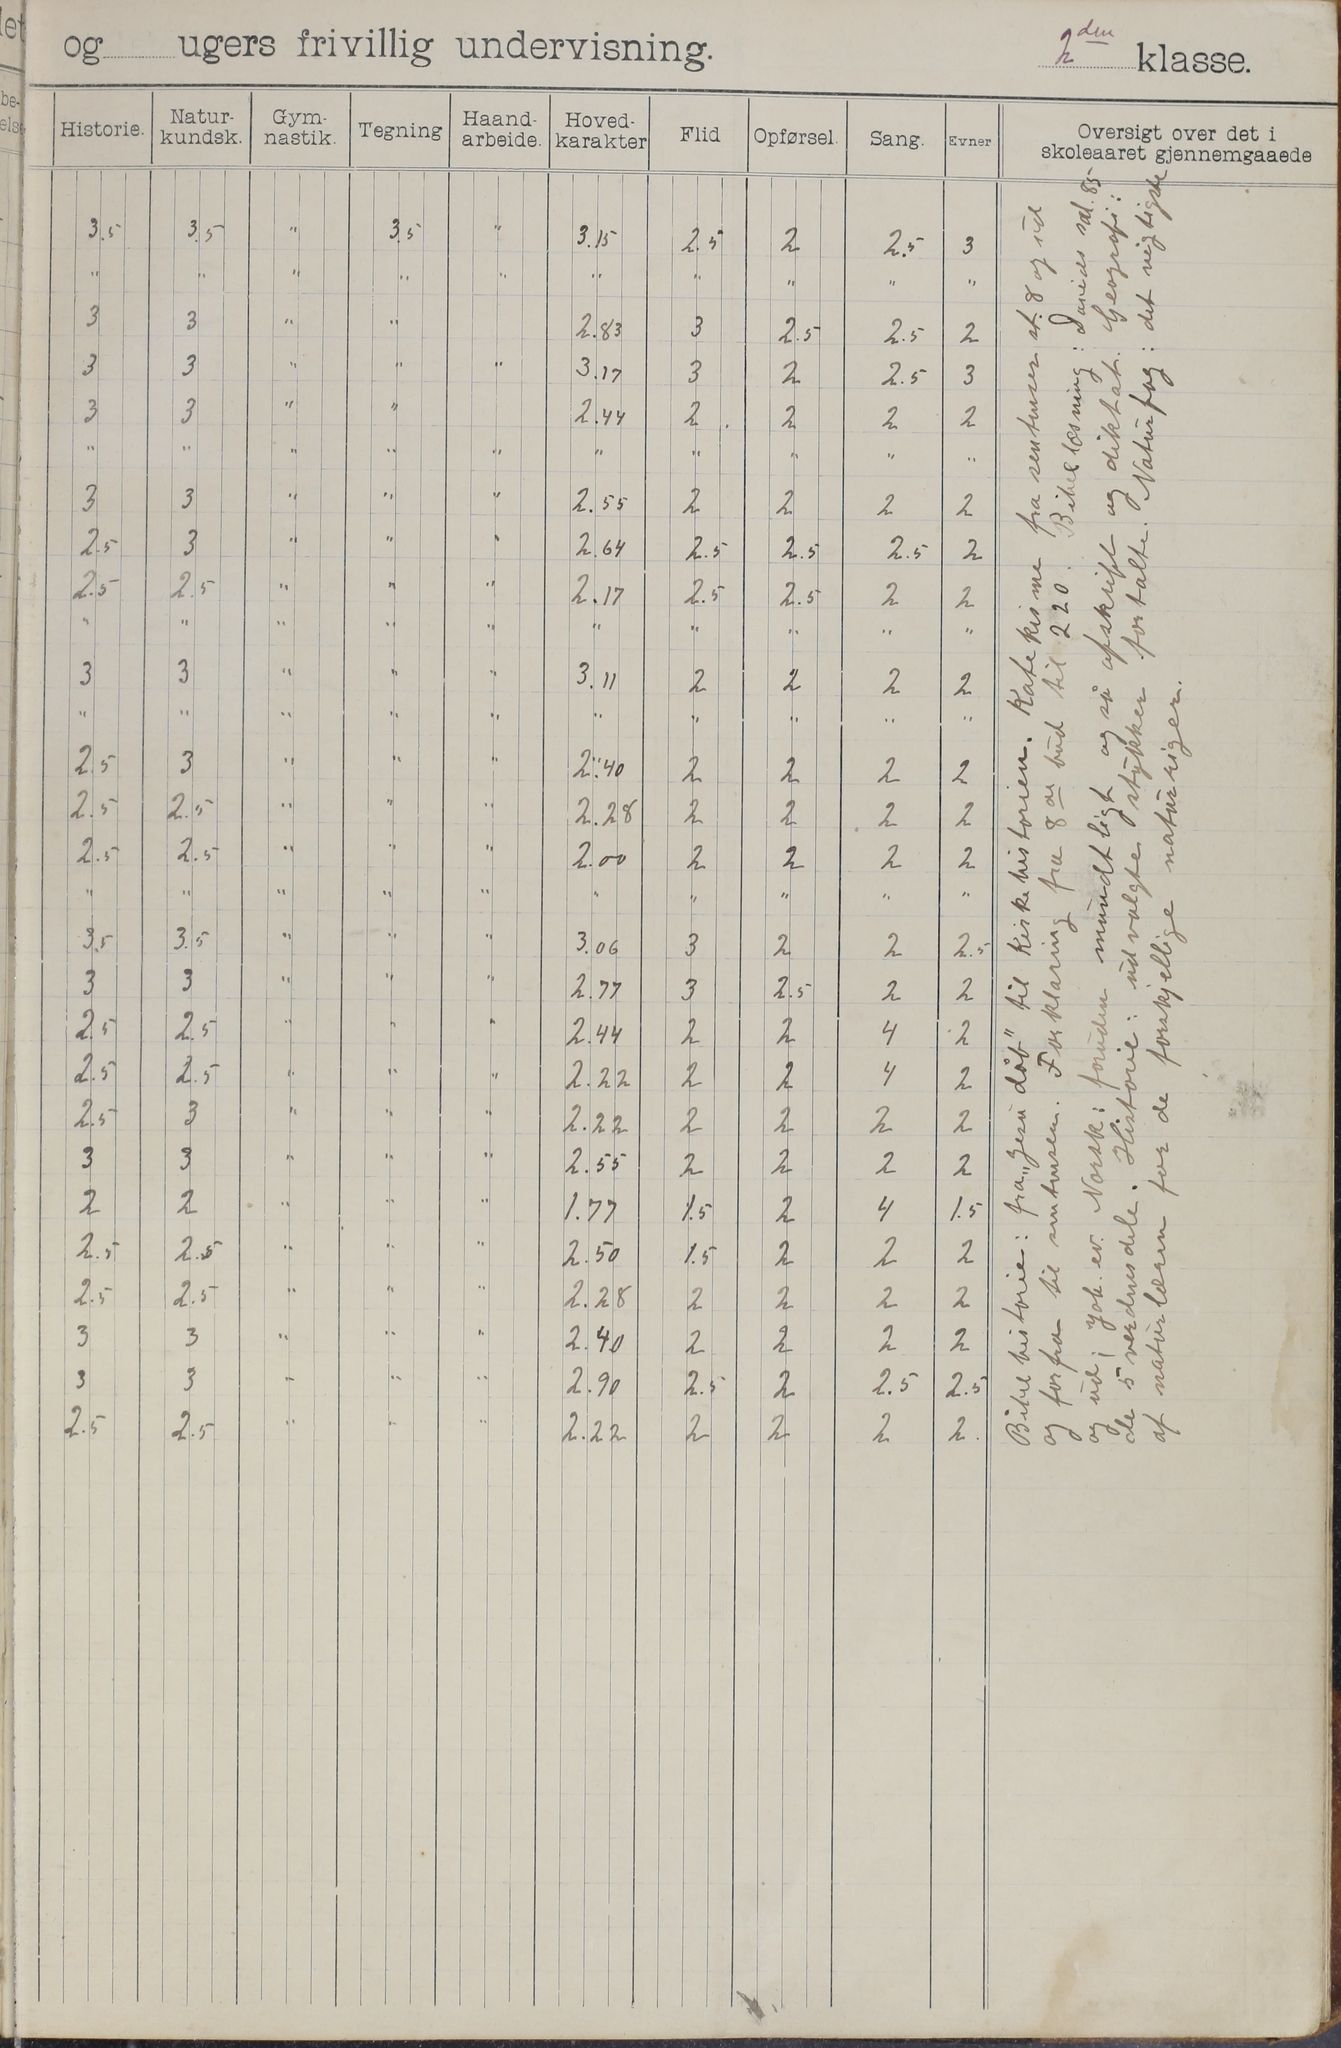 og ugers frivillig undervisning. 2den klasse.
Historie. Natur-kundsk. Gym-nastik. Tegning Haand-arbeide. Hoved-karakter Flid Opførsel. Sang. Evner Oversigt over det i skoleaaret gjennemgaaede
3.5 3.5 " 3.5 " 3.15 2.5 2 2.5 3
" " " " " " " " " "
3 3 " " 2.83 3 2.5 2.5 2
3 3 " " " 3.17 3 2 2.5 3
3 3 " " 2.44 2 2 2 2
" " " " " " " " " "
3 3 " " " 2.55 2 2 2 2
2.5 3 " " " 2.64 2.5 2.5 2.5 2
2.5 2.5 " " " 2.17 2.5 2.5 2 2
" " " " " " " " " "
3 3 " " " 3.11 2 2 2 2
" " " " " " " " " "
2.5 3 " " " 2.40 2 2 2 2
2.5 2.5 " " " 2.28 2 2 2 2
2.5 2.5 " " " 2.00 2 2 2 2
" " " " " " " " " "
3.5 3.5 " " " 3.06 3 2 2 2.5
3 3 " " " 2.77 3 2.5 2 2
2.5 2.5 " " " 2.44 2 2 4 2
2.5 2.5 " " " 2.22 2 2 4 2
2.5 3 " " " 2.22 2 2 2 2
3 3 " " " 2.55 2 2 2 2
2 2 " " " 1.77 1.5 2 4 1.5
2.5 2.5 " " " 2.50 1.5 2 2 2
2.5 2.5 " " " 2.28 2 2 2 2
3 3 " " " 2.40 2 2 2 2
3 3 " " " 2.90 2.5 2 2.5 2.5
2.5 2.5 " " " 2.22 2 2 2 2.
Bibelhistorie: fra "Jesu dåb" til Kirkehistorien. Katekisme fra sentensen st. 8 og ud
og forfra til sentensen. Forklaring fra 8de bud til 220. Bibellæsning: Davids sal. 85
og ud; joh. ev. Norsk: foruden mundtligt og så afskrift og diktat. Geografi:
de 5 verdensdele. Historie: udvalgte stykker fortalte. Naturfag: det vigtigste
af naturlæren for de forskjellige naturriger.